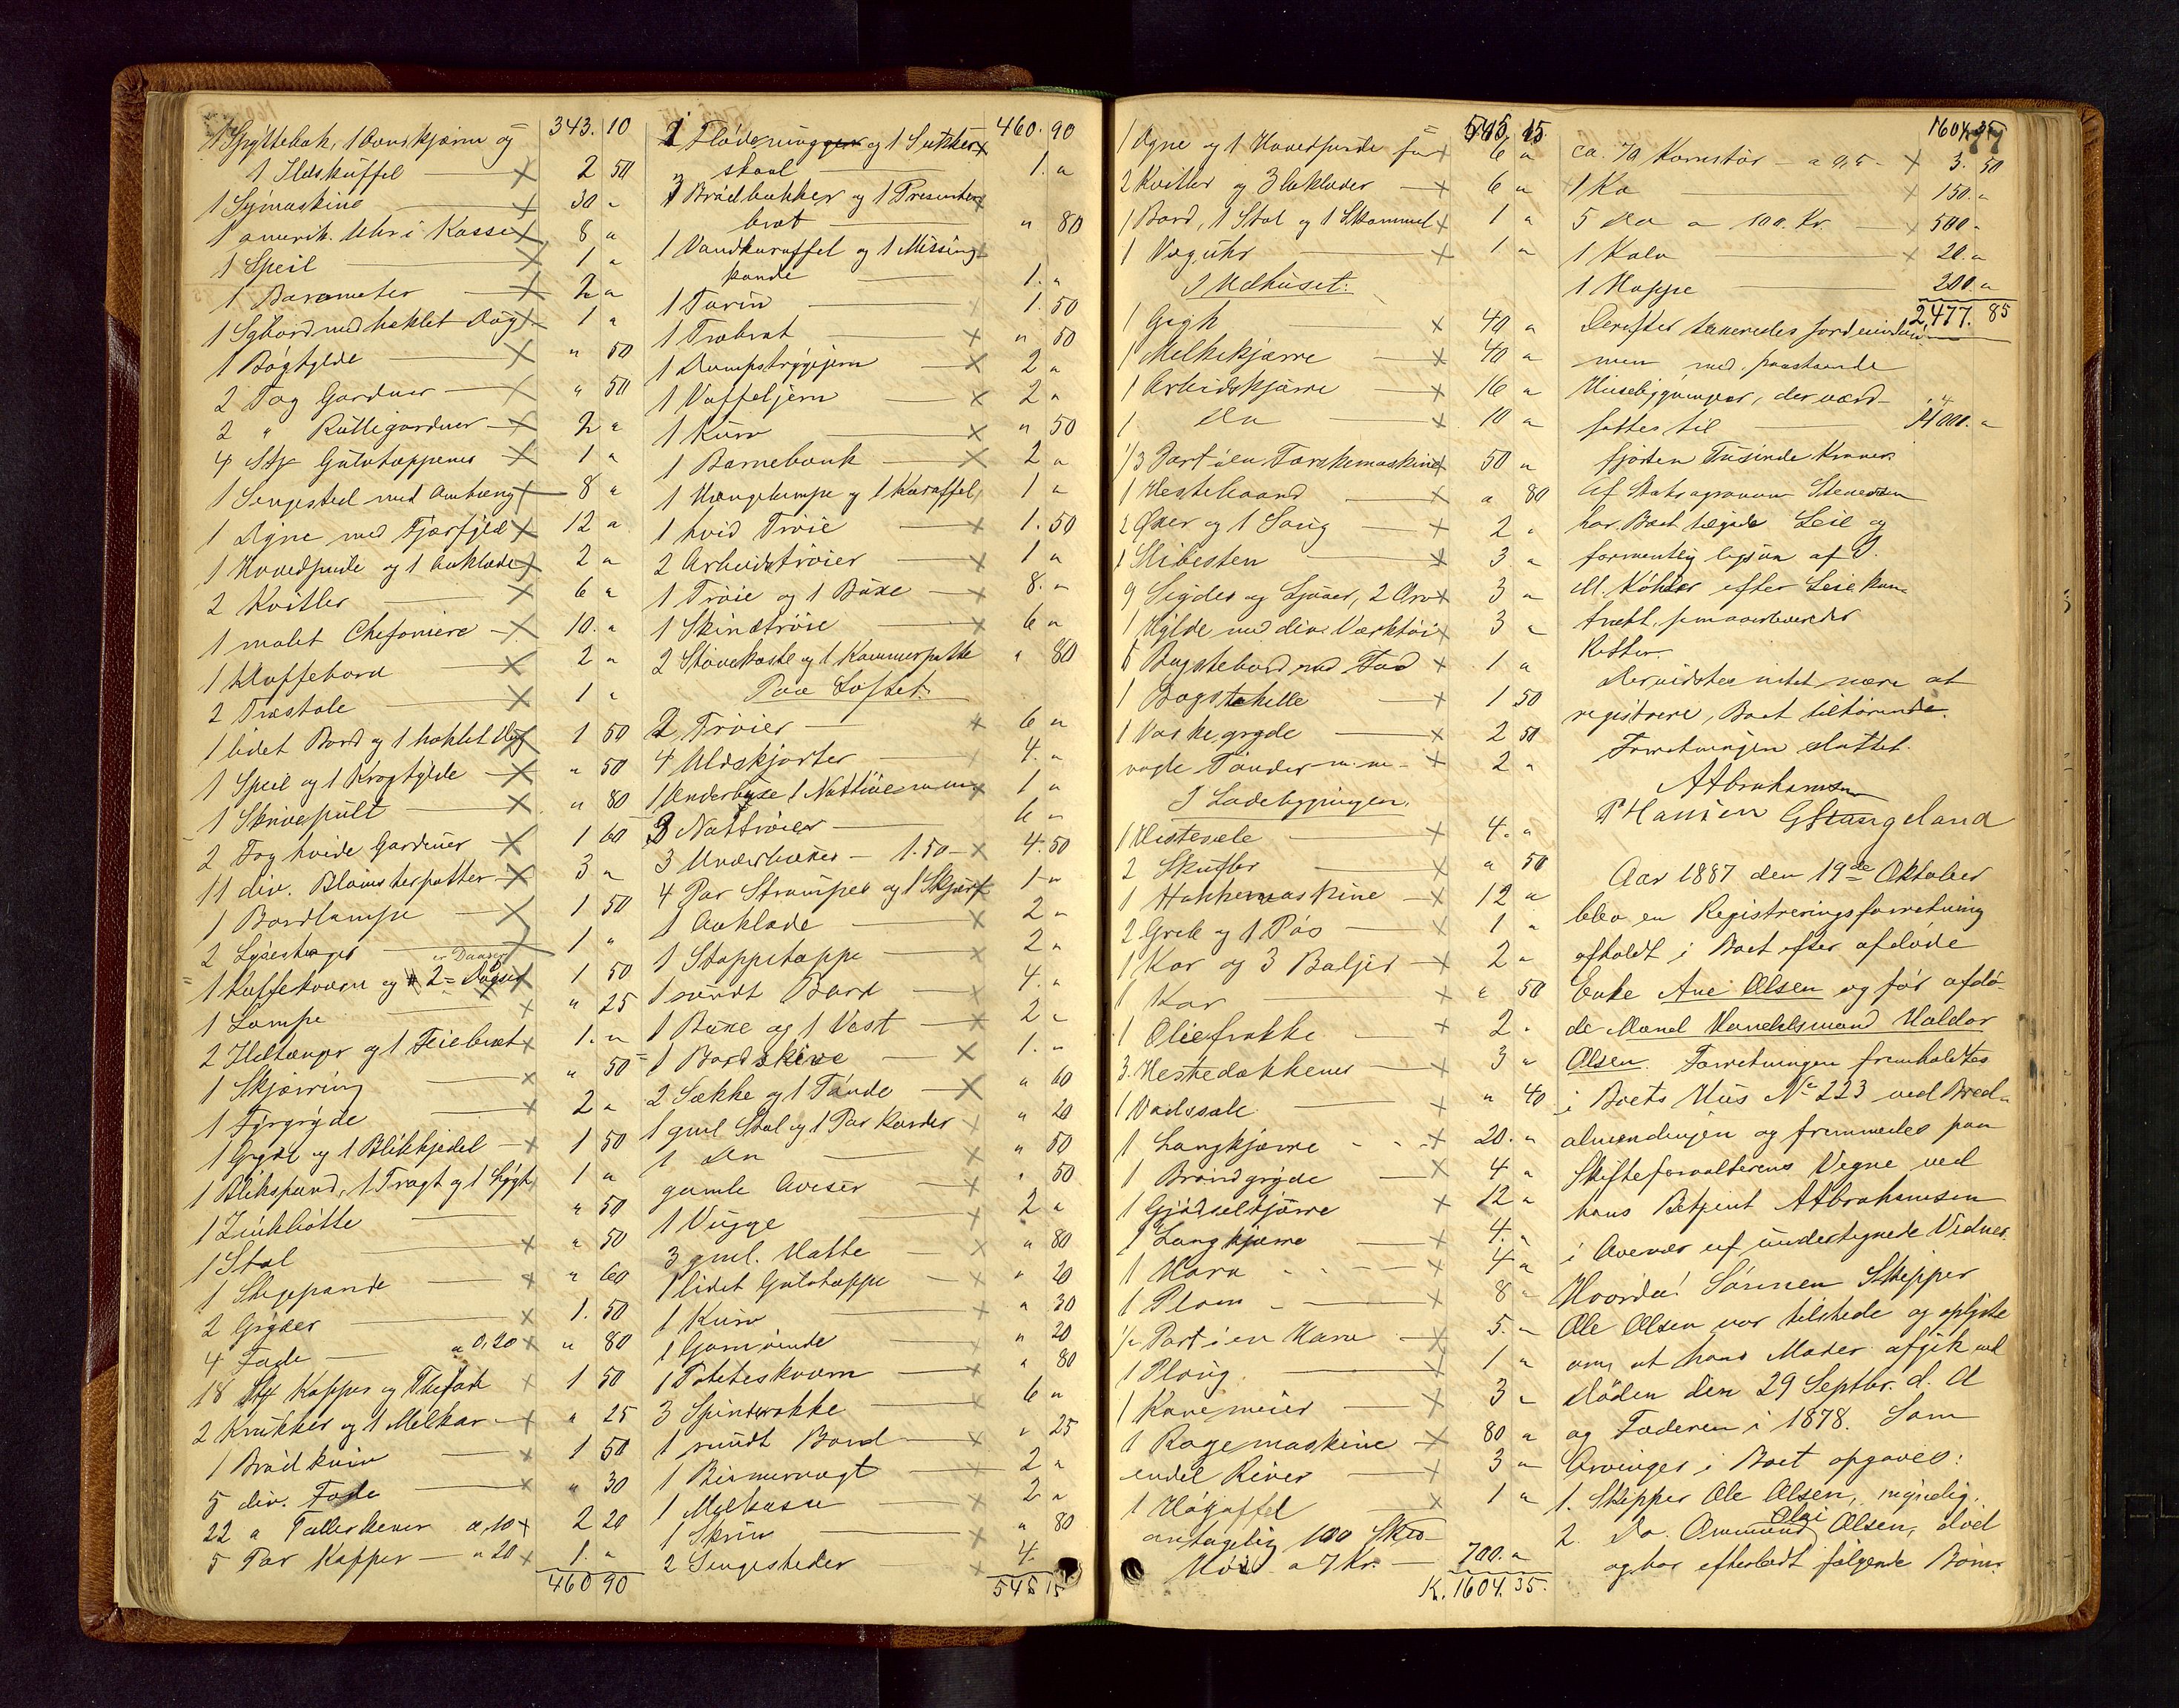 343. 10
1 Spyttebak, 1 Ovnskjærm og
1 Ildskuffel — × 2 50
1 Symaskine — × 30 "
1 amerik. Uhr i Kasse × 8 "
1 Speil — × 1 "
1 Barometer — × 2 "
1 Sybord med heklet Dug × 1 "
1 Boghylde — × " 50
2 Fag Gardiner — × " 50
2 " Rullegardiner × 2 "
4 Stk Gulvtæpper × 1 "
1 Sengested med Omhæng × 8 "
1 Dyne med Fjærfyld × 12 "
1 Hovedpude og 1 Aaklæde × 2 "
2 Kvitler — × 6 "
1 malet Chefoniere × 10. "
1 Klaffebord × 2 "
2 Træstole — × 1 "
1 lidet Bord og 1 heklet Dug × 1 50
1 Speil og 1 Kroghylde × " 50
1 Skrivepult — × " 80
2 Fag hvide Gardiner × 1 60
11 div. Blomsterpotter × 3 "
1 Bordlampe — × 1 50
2 Lysestager — × 1 "
er Daaser
1 Kaffekværn og 2 Daaser × 1 50
1 Lampe — × " 25
2 Ildtænger og 1 Feiebret × 1. "
1 Skjærring — × " 50
1 Fyrgryde — × 2 "
1 Gryde og 1 Blikkjedel × 1 50
1 Blikspand, 1 Tragt og 1 Lygt 1 "
1 Zinkbøtte — " 50
1 Stol — × " 50
1 Stegepande — × " 60
2 Gryder — × 1. 50
4 Fade — a 0,20 × " 80
18 Stk Kopper og Thefade × 1 50
2 Krukker og 1 Melkar × " 25
1 Brødkurv — × 1 50
5 div. Fade — × " 30
22 a Tallerkener a,10 × 2 20
5 Par Kopper — a 20 × 1. "
460 90
460. 90
1 Flødemugge og 1 Sukker ×
skaal — 1. "
3 Brødbakker og 1 Presenter ×
bræt — " 80
1 Vandkaraffel og 1 Missing
kande — 1. "
1 Terin — 1. 50
1 Træbræt — × " 50
1 Dampstrygejern — × 2 "
1 Vaffeljern — × 2 "
1 Kurv — × " 50
1 Barnebænk — × 2 "
1 Hængelampe og 1 Karaffel 1 "
1 hvid Trøie — × 1. 50
2 Arbeidstrøier — × 1 "
1 Trøie og 1 Buxe — × 8. "
1 Skindtrøie — × 6 "
2 Støvekoste og 1 Kammerpotte " 80
Paa Loftet.
2 Trøier — × 6 "
4 Uldskjorter — 4. "
1 Underbuxe 1 Nattrøie m.m. × 1 "
3 Nattrøier — 6 "
3 Underbuxer — 1.50 — × 4. 50
4 Par Strømper og 1 Skjørt 1 "
1 Aaklæde — × 2 "
1 Stoppetæppe — × 2 "
1 rundt Bord — × 4. "
1 Buxe og 1 Vest — × 2 "
1 Bordskive — × 1. "
2 Sække og 1 Tønde — × " 60
1 gml Stol og 1 Par Karder " 20
1 Do — × " 50
gamle Aviser — × " 50
1 Vugge — × 2 "
3 gml. Hatte — × " 80
1 lidet Gulvtæppe — × " 20
1 Kurv — × " 30
1 Garnvinde — " 20
1 Poteteskværn — × " 80
3 Spinderokke — × 6 "
1 rundt Bord — × " 25
1 Bismervægt — × 2 "
1 Melkasse — × 2 "
1 Skrin — × " 80
2 Sengesteder — × 4.
545 15
545 15
1 Dyne og 1 Hovedpude × 6 "
2 Kvitler og 3 Aaklæder × 6 "
1 Bord, 1 Stol og 1 Skammel × 1 "
1 Væguhr — × 1 "
I Udhuset:
1 Gigh — × 40 "
1 Melkekjærre — × 40 "
1 Arbeidskjærre — × 16 "
1 Do — × 10 "
1/3 Part i en Tærskemaskine × 50 "
1 Hestehaand — × " 80
2 Øxer og 1 Saug — × 2 "
1 Slibesten — × 3 "
9 Sigder og Ljaaer, 2 Orv × 3 "
1 Hylde med div. Værktøi × 3 "
6 Bagstebord med Fad × 1 "
1 Bagstehelle — × 1 50
1 Vaskegryde — × 2 50
nogle Tønder m.m. × 2 "
I Ladebygningen.
1 Hestesæle — × 4. "
2 Skufler — × " 50
1 Hakkemaskine — × 12 "
2 Greb og 1 Pós — × 1 "
1 Kar og 3 Baljer — × 2 "
1 Kar — × " 50
1 Oliefrakke — × 2. "
3 Hestedækkener — × 3 "
1 Vadsæle — × " 40
1 Langkjærre — × 20. "
1 Brøndgryde — × 4 "
1 Gjødselkjærre × 12 "
1 Langkjærre — × 4. "
1 Harv — × 4 "
1 Plom — × 8 "
1/2 Part i en Harv × 5. "
1 Ploug — × 1 "
1 Kanemeier — × 3 "
1 Ragemaskine × 80 "
endel River — × 3 "
1 Høgaffel — × 1 "
antagelig 100 Skpd
Hø a 7 Kr. — 700. "
K. 1604. 35.
77
1604 35
ca. 70 Kornstør — a 0,5 — × 3. 50
1 Ko — × 150. "
5 Do a 100 Kr. — × 500 "
1 Kalv — × 20. "
1 Hoppe — 200. "
2477. 85
Derefter taxeredes Jordeiendom
men med paastaaende
Husebygninger, der værd-
sattes til — 14000. "
fjorten Tusinde Kroner.
Af Statsagronom Stenersen
har Boet tilgode Leie og
formentlig ligesaa af P.
M. Køhler efter Leiekon-
trakt
Retten.
Der vidstes intet mere at
registrere, Boet tilhørende.
Forretningen sluttet.
A Abrahamsen
P Hansen G Stangeland
Aar 1887 den 19de Oktober
blev en Registreringsforretning
afholdt i Boet efter afdøde
Enke Ane Olsen og før afdø-
de Mand Handelsmand Haldor
Olsen. Forretningen fremholdtes
i Boets Hus No 223 ved Bred-
almendingen og fremmedes paa
Skifteforvalterens Vegne ved
hans Betjent A Abrahamsen
i Overvær af undertegnede Vidner.
Hvorda! Sønnen Skipper
Ole Olsen var tilstede og oplyste
om, at hans Moder afgik ved
Døden den 29 Septbr. d. A
og Faderen i 1878. Som
Arvinger i Boet opgaves:
1. Skipper Ole Olsen, myndig.
Olai
2. Do. Ommund Olsen, død
og har efterladt følgende Børn: